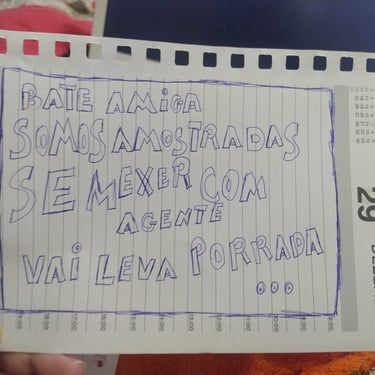 BATE AMIGA
SOMOS AMOSTRADAS
SE MEXER COM
AGENTE
VAi LEVA PORRADA
...
29